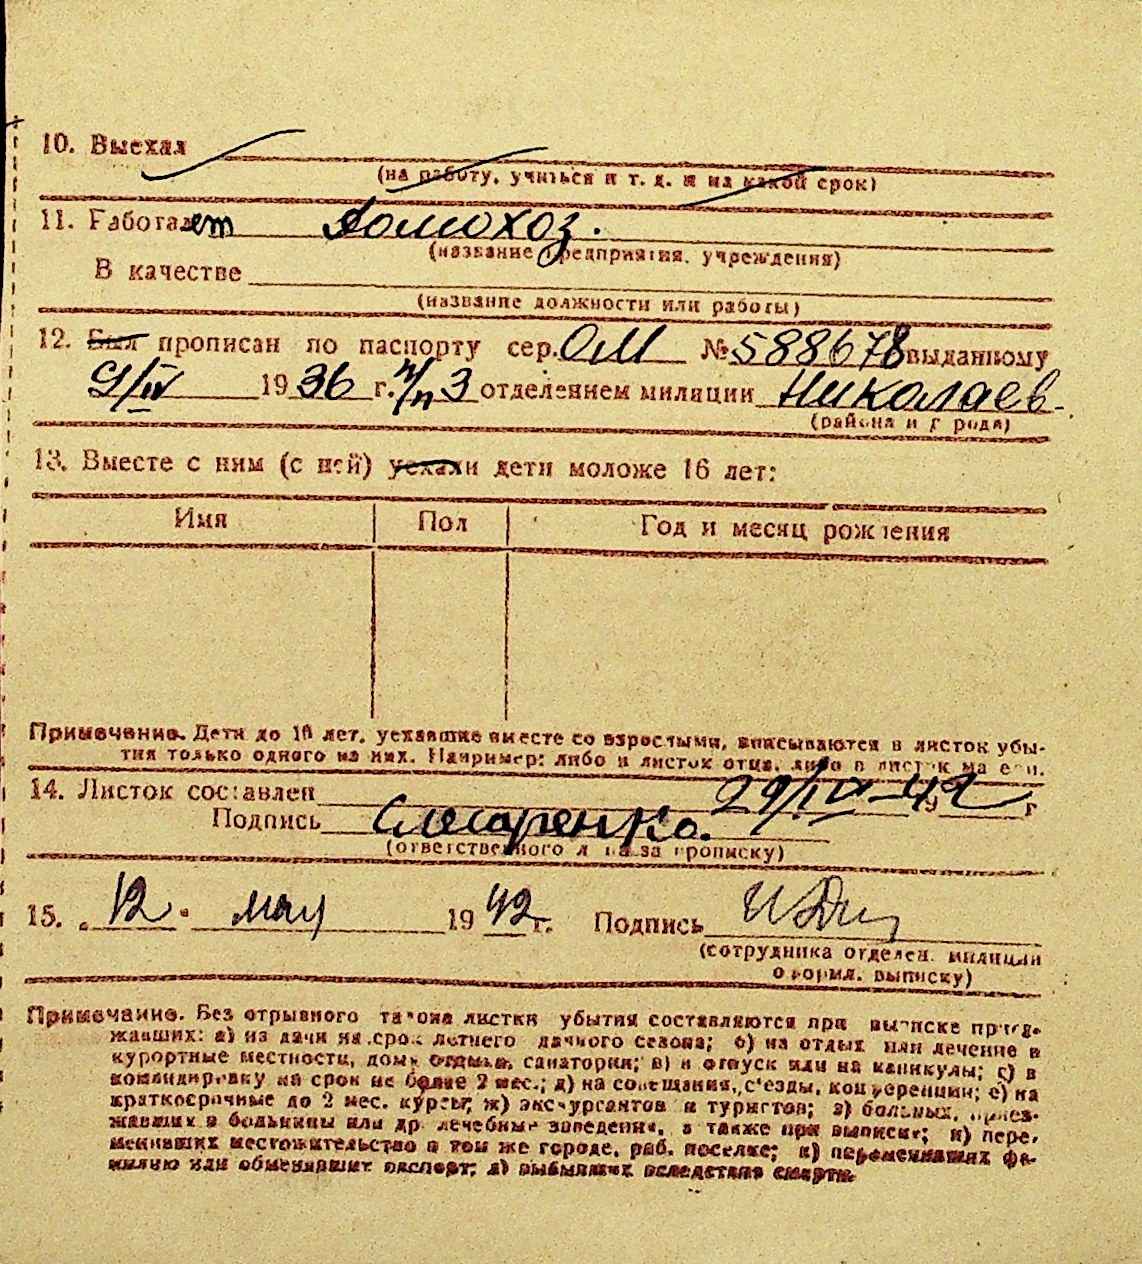 10. Выехал
(на работу, учиться и т. д. и на какой срок)
11. Работает Домохоз.
(название предприятия, учреждения)
В качестве
(название должности или работы)
12. Был прописан по паспорту сер. ОМ № 588678 выданному
9/IV 1936 г. н/п 3 отделением милиции Николаев.
(района и города)
13. Вместе с ним (с ней) уехали дети моложе 16 лет:
Имя Пол Год и месяц рождения
Примечание. Дети до 16 лет, уехавшие вместе со взрослыми, вписываются в листок убы-
тия только одного из них. Например: либо в листок отца, либо в листок матери.
14. Листок составлен 29/IV-42 г
Подпись Слюсаренко.
(ответственного лица за прописку)
15. "12" мая 1942 г. Подпись
(сотрудника отделен. милиции
оформл. выписку)
Примечание. Без отрывного талона листки убытия составляются при выписке приез-
жавших: а) на дачи на срок летнего дачного сезона; б) на отдых или лечение в
курортные местности, дома отдыха, санатории; в) в отпуск или на каникулы; г) в
командировку на срок не более 2 мес.; д) на совещания, с'езды, конференции; е) на
краткосрочные до 2 мес. курсы; ж) экскурсантов и туристов; з) больных, приез-
жавших в больницы или др. лечебные заведения, а также при выписке; и) пере-
менивших местожительство в том же городе, раб. поселке; к) переменивших фа-
милию или обменявших паспорт; л) выбывших вследствие смерти.